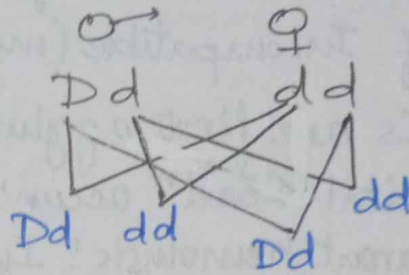 ♂ ♀
D d d d
Dd dd Dd dd